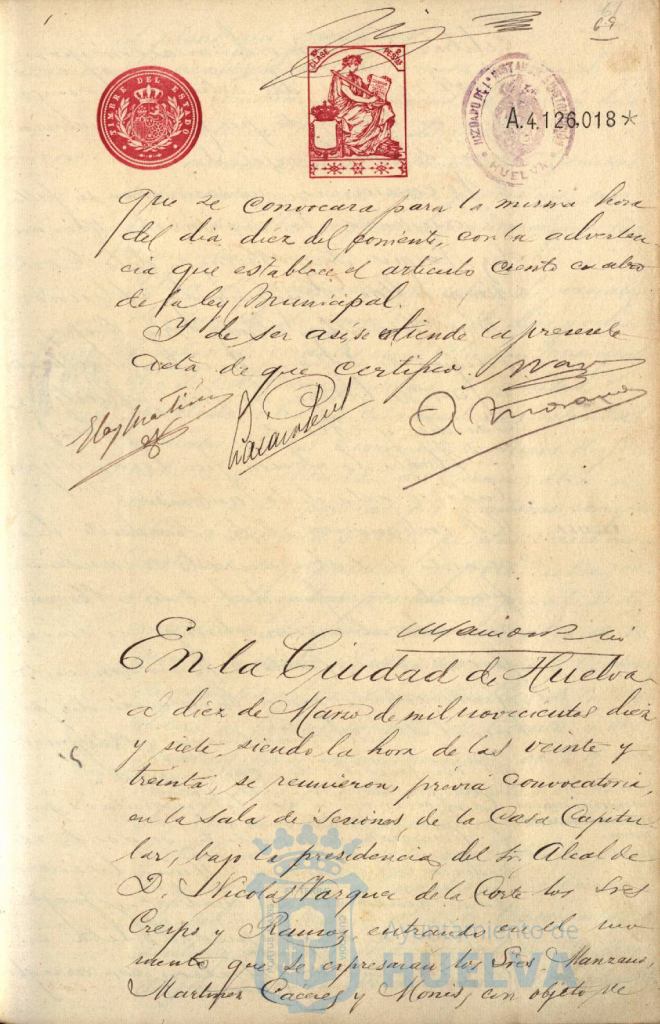 69
TIMBRE DEL ESTADO
CLASE
JUZGADO DE 1ª INSTANCIA
HUELVA
A.4.126,018*
que se convocara para la misma hora
del dia diez del corriente, con la adverten-
cia que establece el articulo ciento cuatro
de la ley Municipal.
Y de ser asi se estiende la presente
acta de que certifico.
Eloy Martin
A. Moreno
En la Ciudad de Huelva
á diez de Marzo de mil novecientos diez
y siete, siendo la hora de las veinte y
treinta, se reunieron, prévia convocatoria,
en la Sala de Sesiones, de la Casa Capitu-
lar, bajo la presidencia, del Sr. Alcalde
D. Nicolas Vazquez de la Corte los Sres
Crespo y Ramos, entrando en el mo-
mento que se expresaran los Sres. Manzano,
Martinez Caceres y Monis, con objeto de
Ayuntamiento de
HUELVA